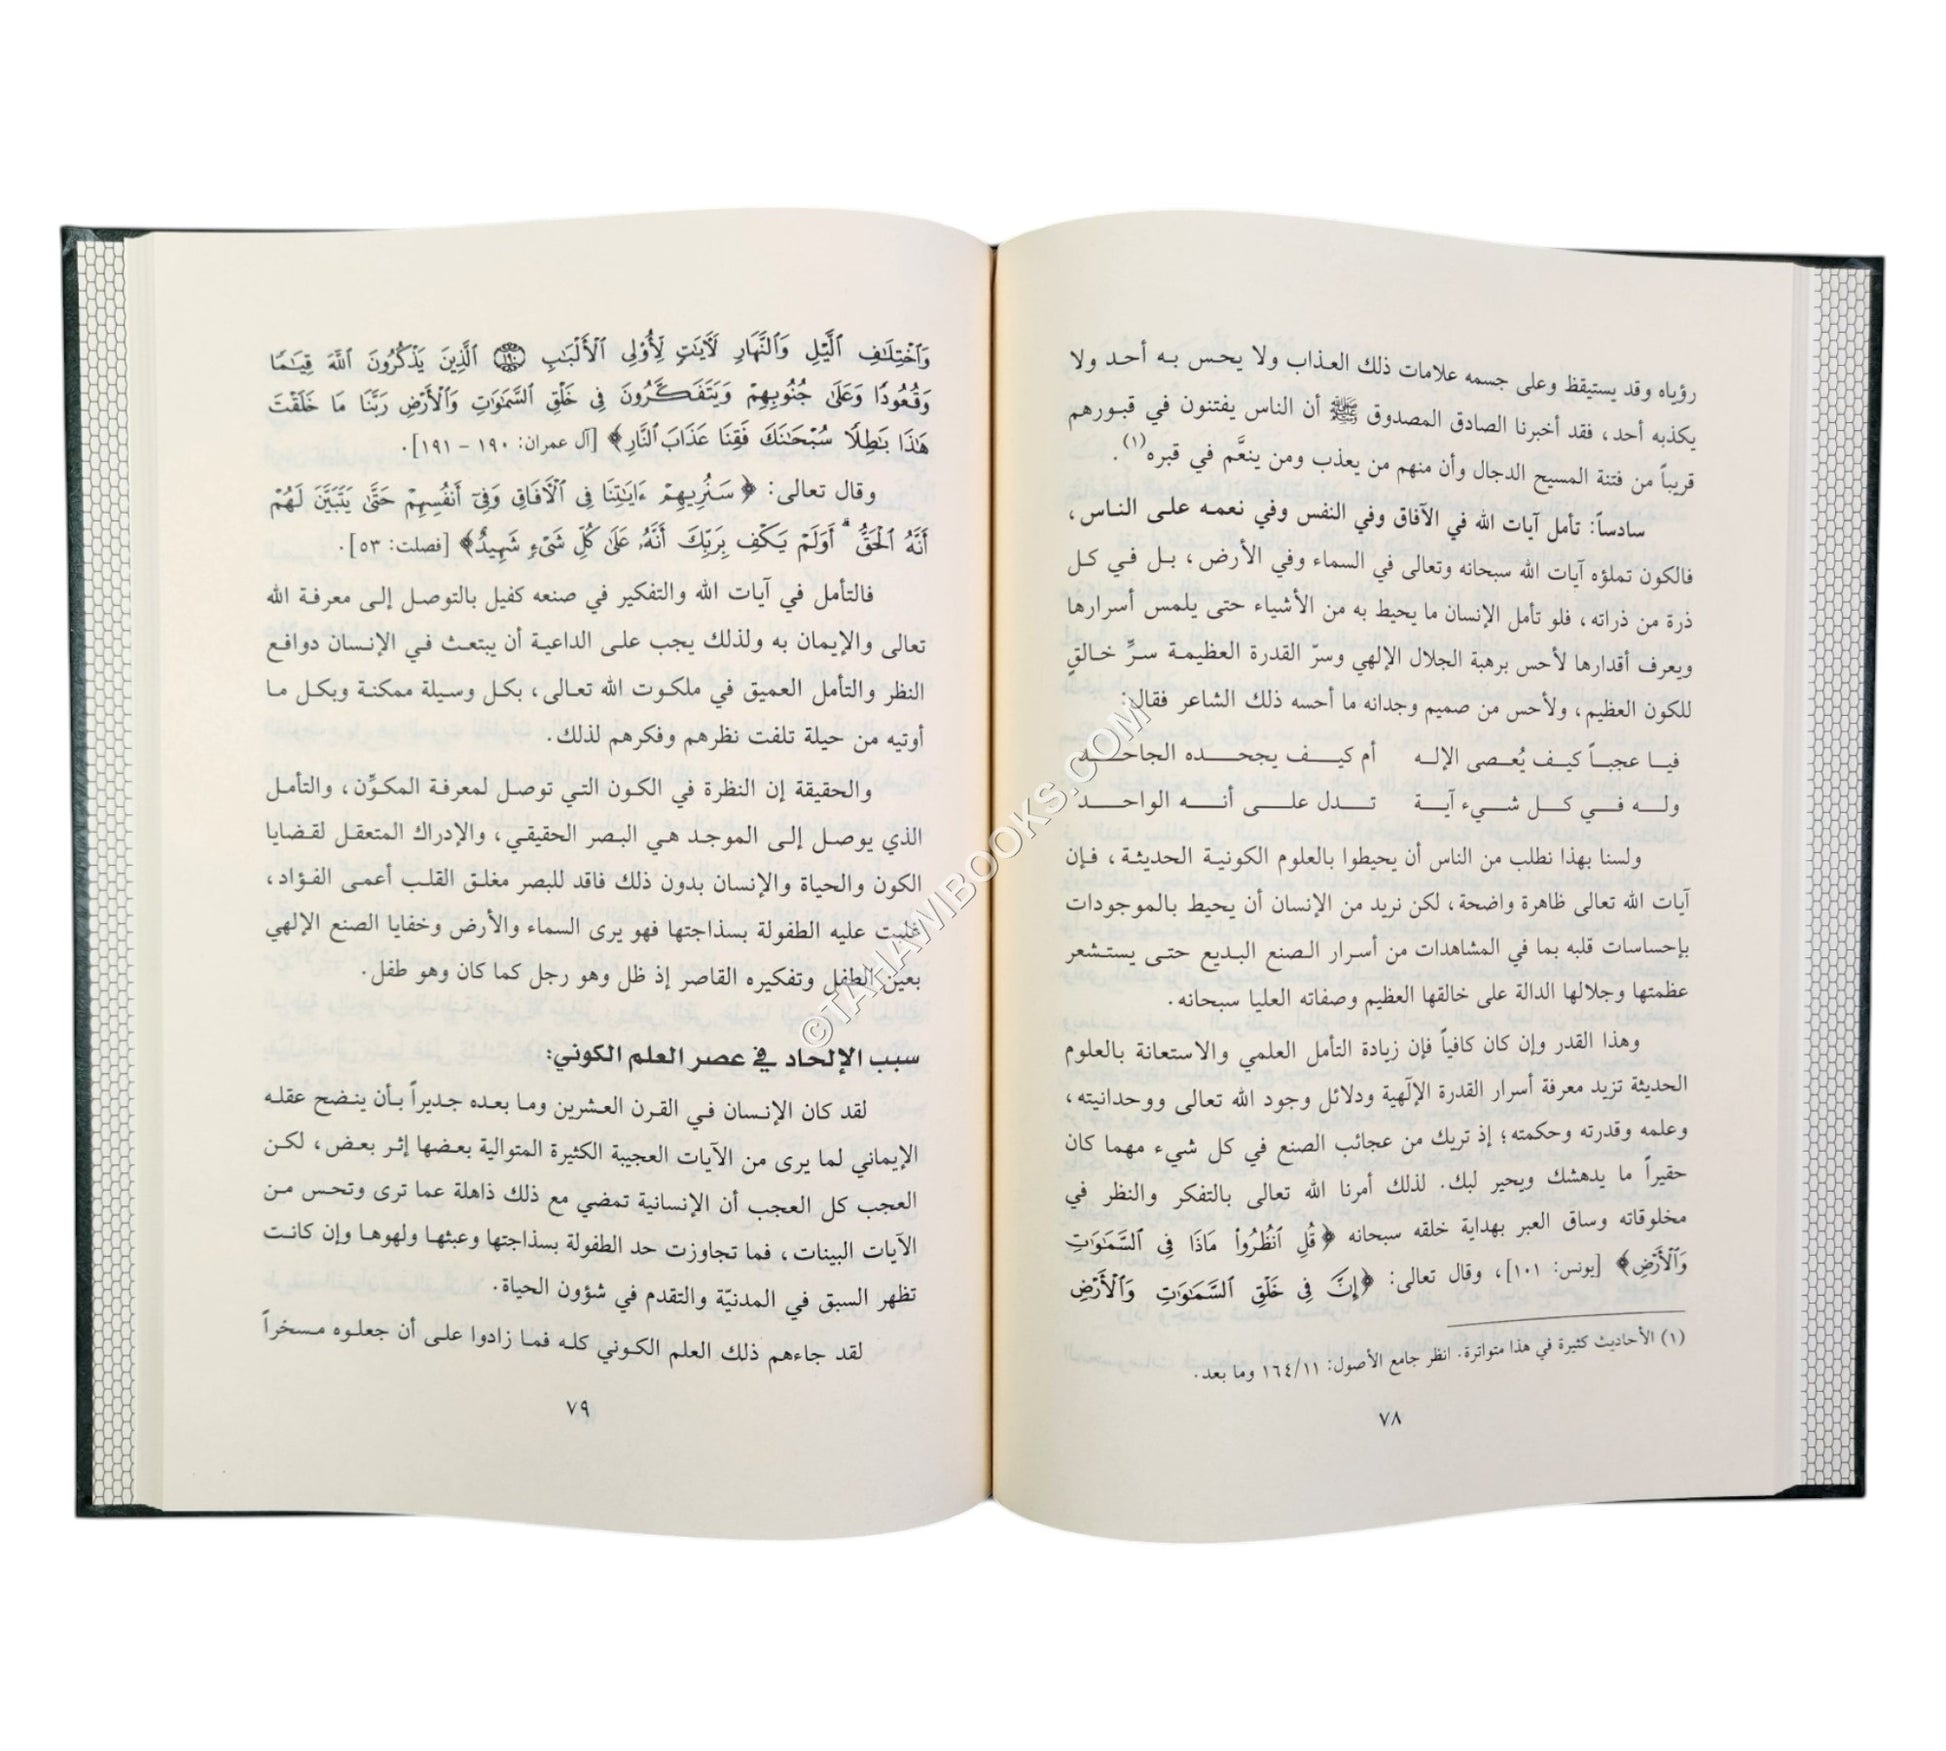 رؤياه وقد يستيقظ وعلى جسمه علامات ذلك العذاب ولا يحس به أحد ولا
يكذبه أحد، فقد أخبرنا الصادق المصدوق ﷺ أن الناس يفتنون في قبورهم
قريباً من فتنة المسيح الدجال وأن منهم من يعذب ومن ينعَّم في قبره(١).
سادساً: تأمل آيات الله في الآفاق وفي النفس وفي نعمه على الناس،
فالكون تملؤه آيات الله سبحانه وتعالى في السماء وفي الأرض، بل في كل
ذرة من ذراته، فلو تأمل الإنسان ما يحيط به من الأشياء حتى يلمس أسرارها
ويعرف أقدارها لأحس برهبة الجلال الإلهي وسرّ القدرة العظيمة سرِّ خالقٍ
للكون العظيم، ولأحس من صميم وجدانه ما أحسه ذلك الشاعر فقال:
فيا عجباً كيف يُعصى الإله أم كيف يجحده الجاحد
وله في كل شيء آية تدل على أنه الواحد
ولسنا بهذا نطلب من الناس أن يحيطوا بالعلوم الكونية الحديثة، فإن
آيات الله تعالى ظاهرة واضحة، لكن نريد من الإنسان أن يحيط بالموجودات
بإحساسات قلبه بما في المشاهدات من أسرار الصنع البديع حتى يستشعر
عظمتها وجلالها الدالة على خالقها العظيم وصفاته العليا سبحانه.
وهذا القدر وإن كان كافياً فإن زيادة التأمل العلمي والاستعانة بالعلوم
الحديثة تزيد معرفة أسرار القدرة الإلهية ودلائل وجود الله تعالى ووحدانيته،
وعلمه وقدرته وحكمته؛ إذ تريك من عجائب الصنع في كل شيء مهما كان
حقيراً ما يدهشك ويحير لبك. لذلك أمرنا الله تعالى بالتفكر والنظر في
مخلوقاته وساق العبر بهداية خلقه سبحانه ﴿قُلِ ٱنظُرُوا۟ مَاذَا فِى ٱلسَّمَٰوَٰتِ
وَٱلْأَرْضِ﴾ [يونس: ١٠١]، وقال تعالى: ﴿إِنَّ فِى خَلْقِ ٱلسَّمَٰوَٰتِ وَٱلْأَرْضِ
(١) الأحاديث كثيرة في هذا متواترة. انظر جامع الأصول: ١٦٤/١١ وما بعد.
٧٨
وَٱخْتِلَٰفِ ٱلَّيْلِ وَٱلنَّهَارِ لَءَايَٰتٍ لِّأُو۟لِى ٱلْأَلْبَٰبِ ﴿١٩٠﴾ ٱلَّذِينَ يَذْكُرُونَ ٱللَّهَ قِيَٰمًا
وَقُعُودًا وَعَلَىٰ جُنُوبِهِمْ وَيَتَفَكَّرُونَ فِى خَلْقِ ٱلسَّمَٰوَٰتِ وَٱلْأَرْضِ رَبَّنَا مَا خَلَقْتَ
هَٰذَا بَٰطِلًا سُبْحَٰنَكَ فَقِنَا عَذَابَ ٱلنَّارِ﴾ [آل عمران: ١٩٠ - ١٩١].
وقال تعالى: ﴿سَنُرِيهِمْ ءَايَٰتِنَا فِى ٱلْءَافَاقِ وَفِىٓ أَنفُسِهِمْ حَتَّىٰ يَتَبَيَّنَ لَهُمْ
أَنَّهُ ٱلْحَقُّ ۗ أَوَلَمْ يَكْفِ بِرَبِّكَ أَنَّهُۥ عَلَىٰ كُلِّ شَىْءٍ شَهِيدٌ﴾ [فصلت: ٥٣].
فالتأمل في آيات الله والتفكير في صنعه كفيل بالتوصل إلى معرفة الله
تعالى والإيمان به ولذلك يجب على الداعية أن يبتعث في الإنسان دوافع
النظر والتأمل العميق في ملكوت الله تعالى، بكل وسيلة ممكنة وبكل ما
أوتيه من حيلة تلفت نظرهم وفكرهم لذلك.
والحقيقة إن النظرة في الكون التي توصل لمعرفة المكوِّن، والتأمل
الذي يوصل إلى الموجد هي البصر الحقيقي، والإدراك المتعقل لقضايا
الكون والحياة والإنسان بدون ذلك فاقد للبصر مغلق القلب أعمى الفؤاد،
غلبت عليه الطفولة بسذاجتها فهو يرى السماء والأرض وخفايا الصنع الإلهي
بعين الطفل وتفكيره القاصر إذ ظل وهو رجل كما كان وهو طفل.
سبب الإلحاد في عصر العلم الكوني:
لقد كان الإنسان في القرن العشرين وما بعده جديراً بأن ينضح عقله
الإيماني لما يرى من الآيات العجيبة الكثيرة المتوالية بعضها إثر بعض، لكن
العجب كل العجب أن الإنسانية تمضي مع ذلك ذاهلة عما ترى وتحس من
الآيات البينات، فما تجاوزت حد الطفولة بسذاجتها وعبثها ولهوها وإن كانت
تظهر السبق في المدنيّة والتقدم في شؤون الحياة.
لقد جاءهم ذلك العلم الكوني كله فما زادوا على أن جعلوه مسخراً
٧٩
©TAHAWIBOOKS.COM